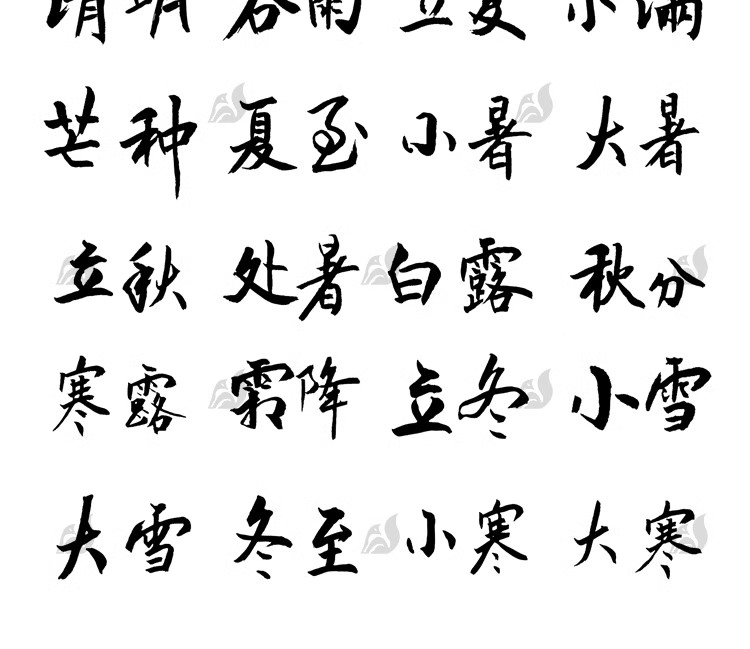 清明 谷雨 立夏 小满
芒种 夏至 小暑 大暑
立秋 处暑 白露 秋分
寒露 霜降 立冬 小雪
大雪 冬至 小寒 大寒